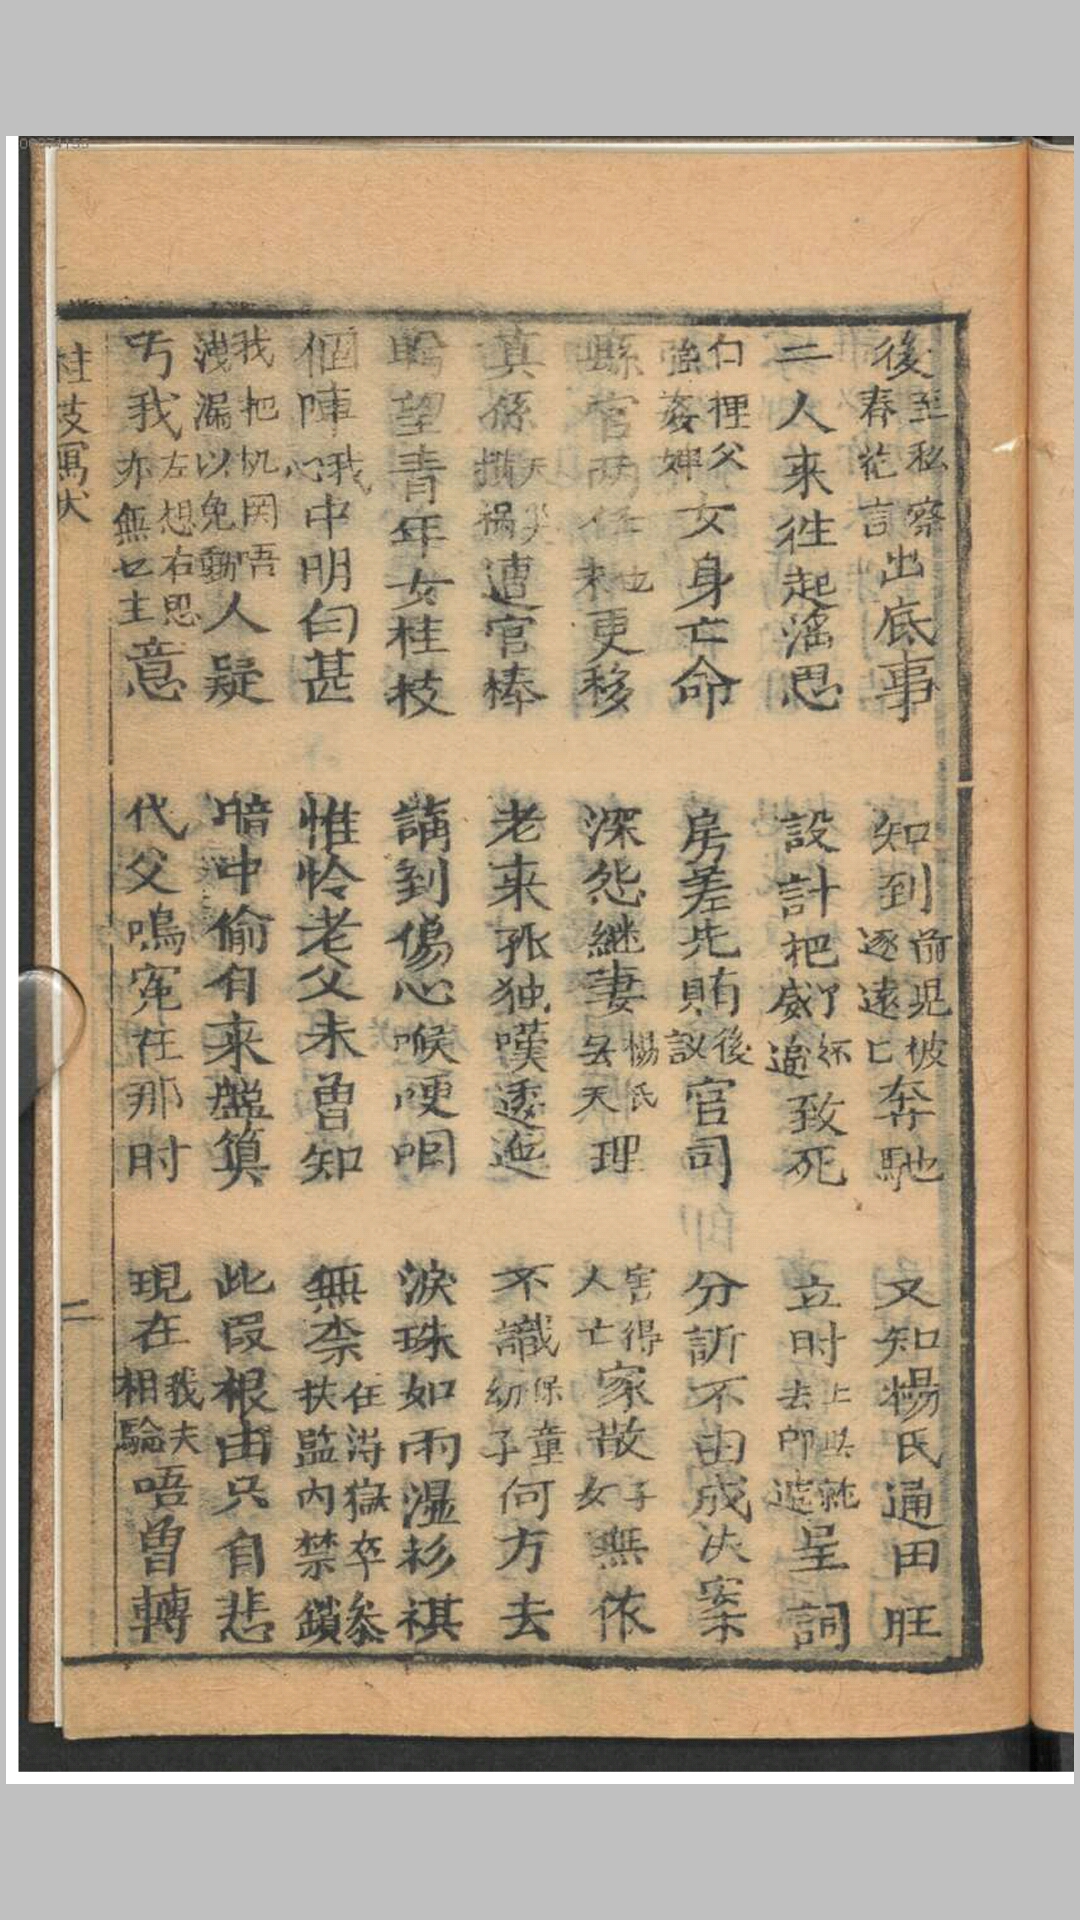 後至私察春花言出底事　知到前児被逐遠亡奔馳　又知楊氏通田旺
二人来徃起滛思　設計把了妳威逼致死　立时上县就去即遞呈詞
白裡父強姦婢女身亡命　房差先賄後議官司　分訴不由成决案
縣官両任也未更移　深怨継妻楊氏丢天理　害得人亡家散子女無依
真係天災攅禍遭官棒　老来孤独嘆透迤　不識保童幼子何方去
望青年女桂枝　講到傷心喉哽咽　淚珠如雨濕衫祺
個陣我心中明白甚　惟怜老父未曾知　無柰在得獄卒叅扶監內禁鎖
我把机関唔洩漏以免動人疑　暗中偷自来盤筭　此叚根由只自悲
丐我左想右思亦無乜主意　代父鳴寃在那时　現在我夫相騐唔曽轉
桂枝寫狀
二